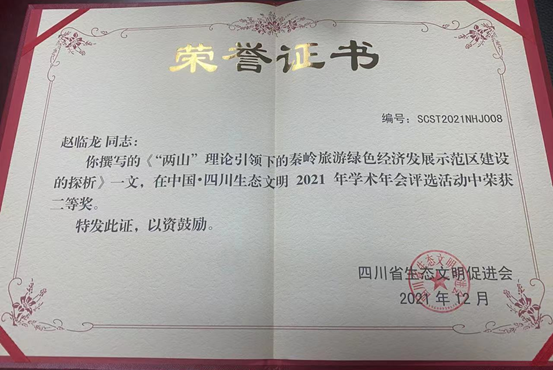 荣誉证书
编号：SCST2021NHJ008
赵临龙 同志：
你撰写的《“两山”理论引领下的秦岭旅游绿色经济发展示范区建设
的探析》一文，在中国·四川生态文明 2021 年学术年会评选活动中荣获
二等奖。
特发此证，以资鼓励。
四川省生态文明促进会
2021 年 12 月